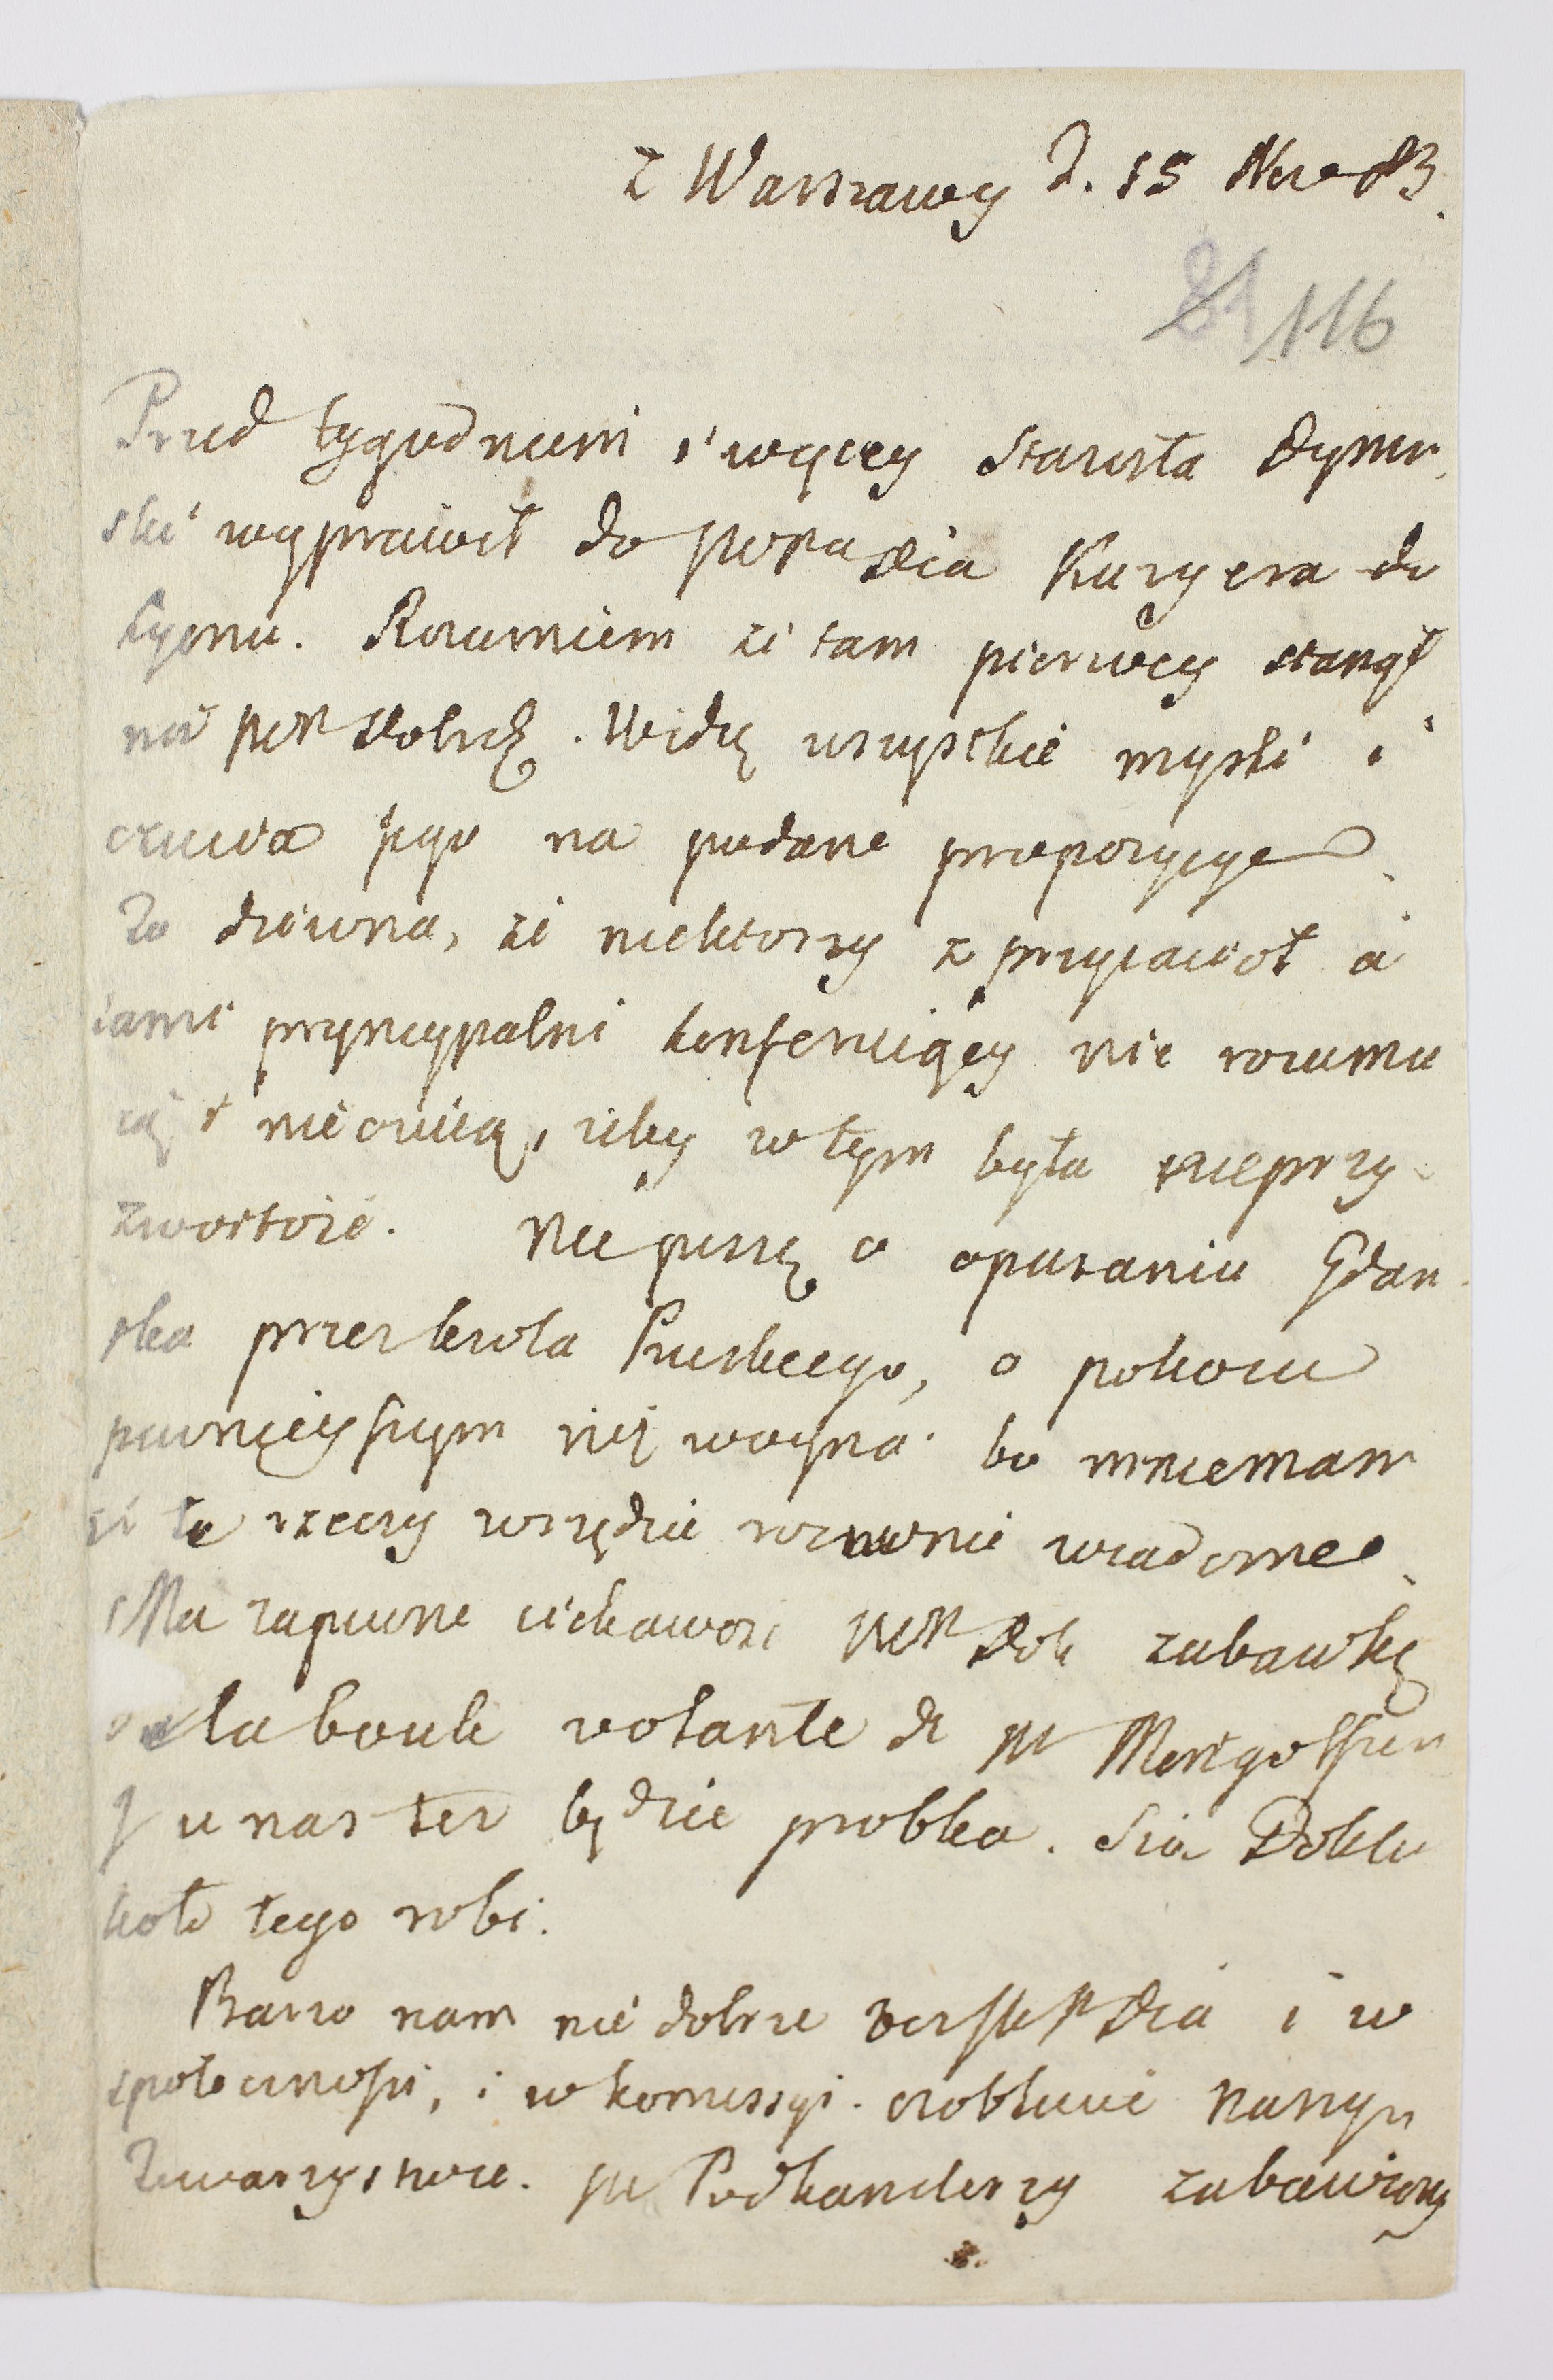 z Warszawy d. 15 Nov 83.
81 116
Przed tygodniem i więcey Starosta Dymir
ski wyprawił do WPana Dia Kuryera do
Lyonu. Rozumiem że tam pierwey stanął
niż WP Dobrodz. Widzę wszystkie mysli i
czucia jego na podane propozycye
To dziwna, że niektorzy z przyiacioł a
sami pryncypalni konferuiący nie rozumie
ią i nie czuią, żeby w tym była nieprzy-
zwoitość. Nie piszę o opasaniu Gdan
ska przez krola Pruskiego, o pokoiu
pewnieyszym niż woyna. bo mniemam
że te rzeczy wszędzie rownie wiadome
Ma zapewne ciekawość WP Dob zabawkę
la boule volante de Mr Mongolfier
J u nas też będzie probka. Xia Dokto
koło tego robi.
Barzo nam nie dobrze bez WP Dia i w
społeczności, i w komissyi. osobliwie naszym
Towarzystwie. JW Podkanclerzy zabawiony